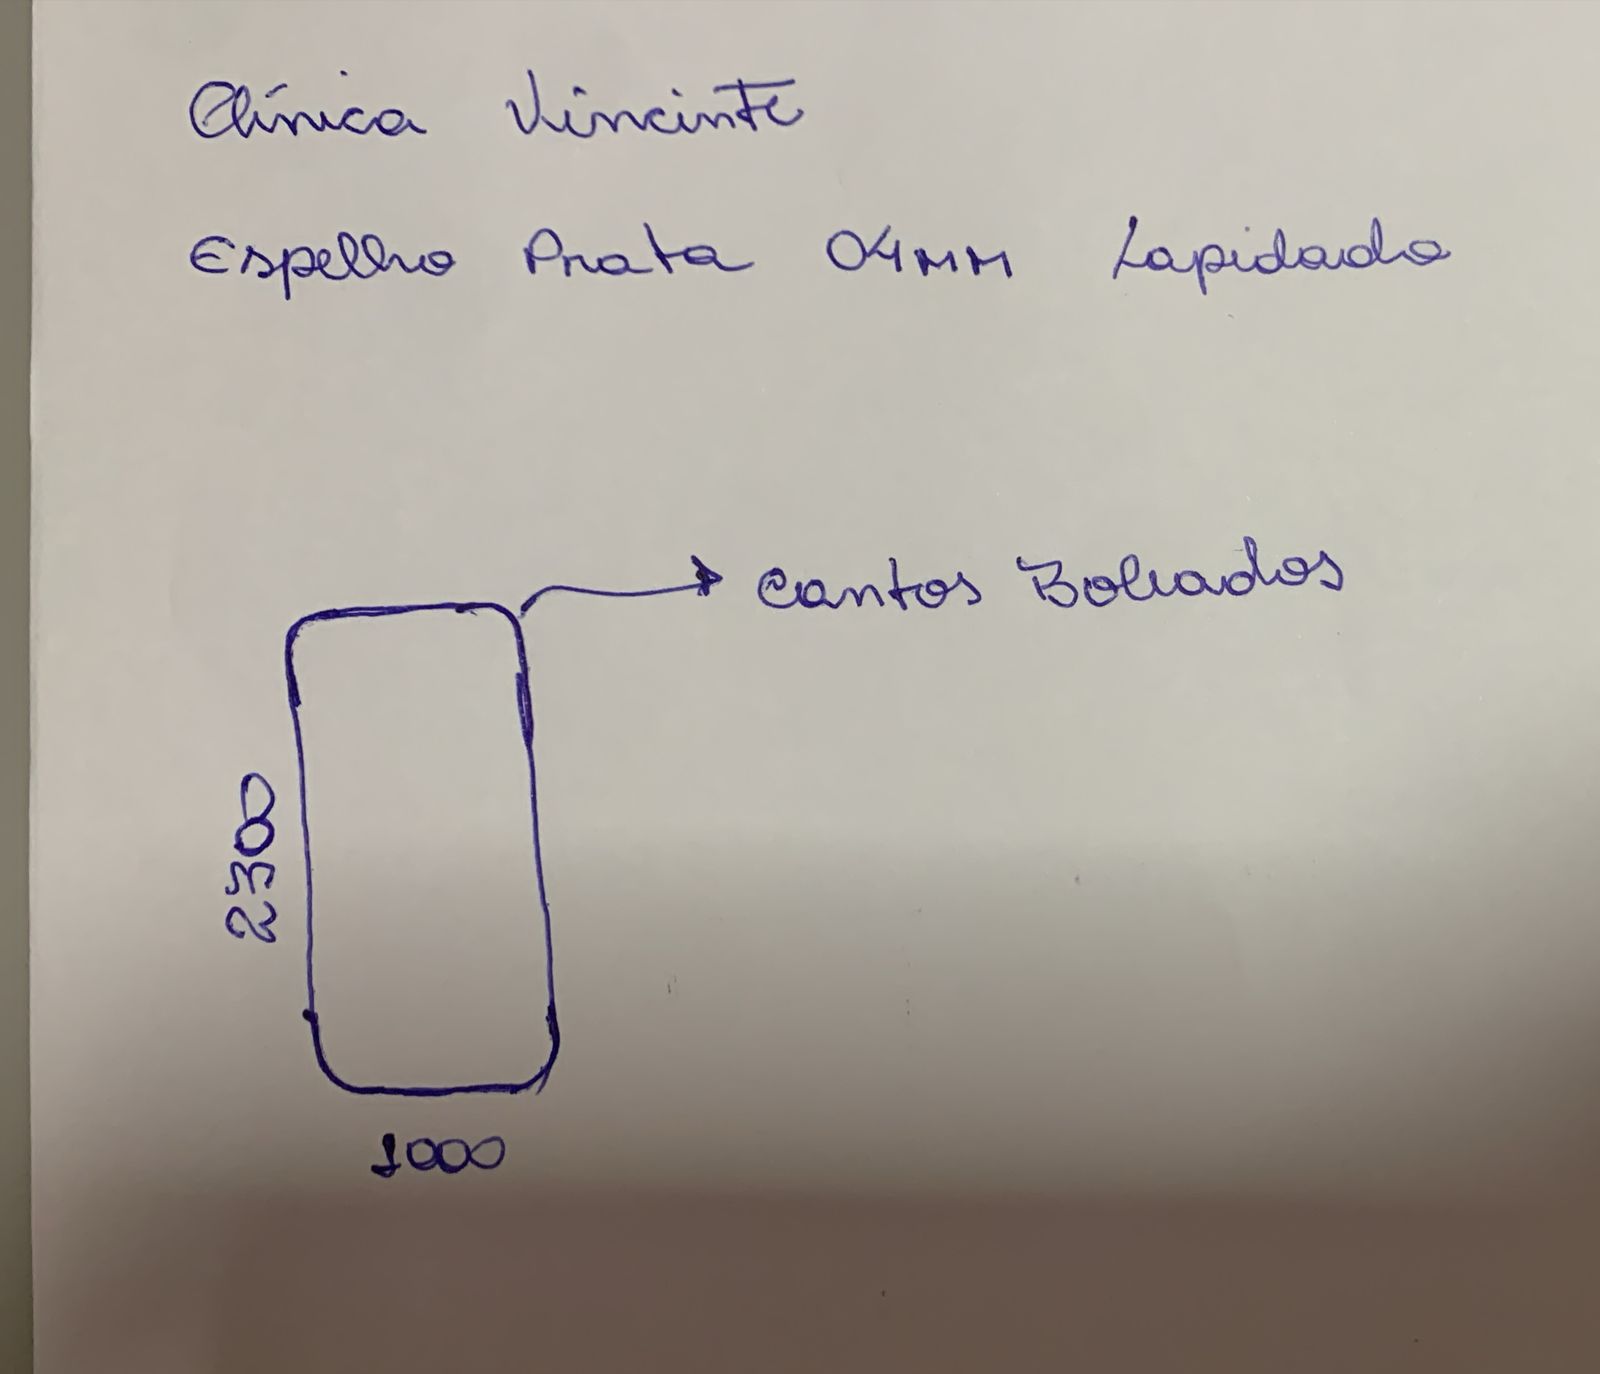 Clínica Vincinte
Espelho Prata 04MM Lapidado
Cantos Boleados
2300
1000